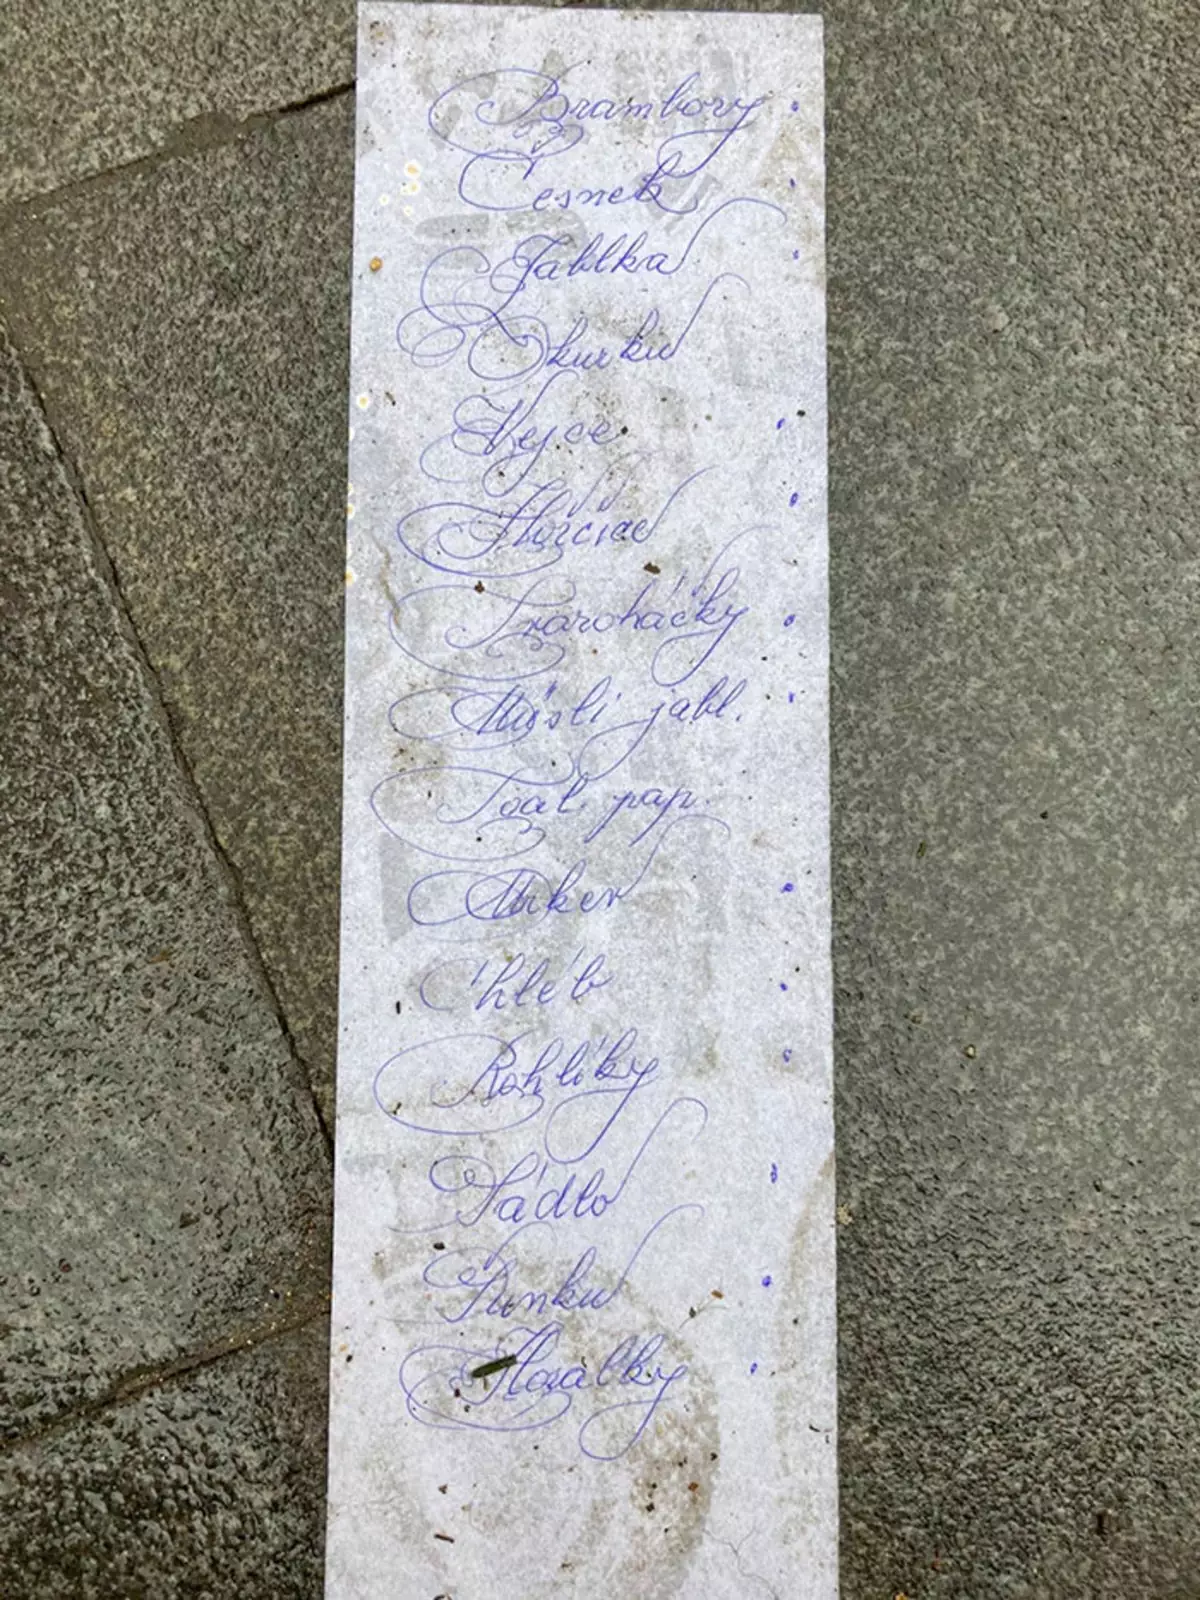 Brambory
Česnek
Jablka
Okurku
Vejce
Hořčici
Tvaroháčky
Müsli jabl.
Toal. pap.
Mrkev
Chléb
Rohlíky
Sádlo
Šunku
Horalky